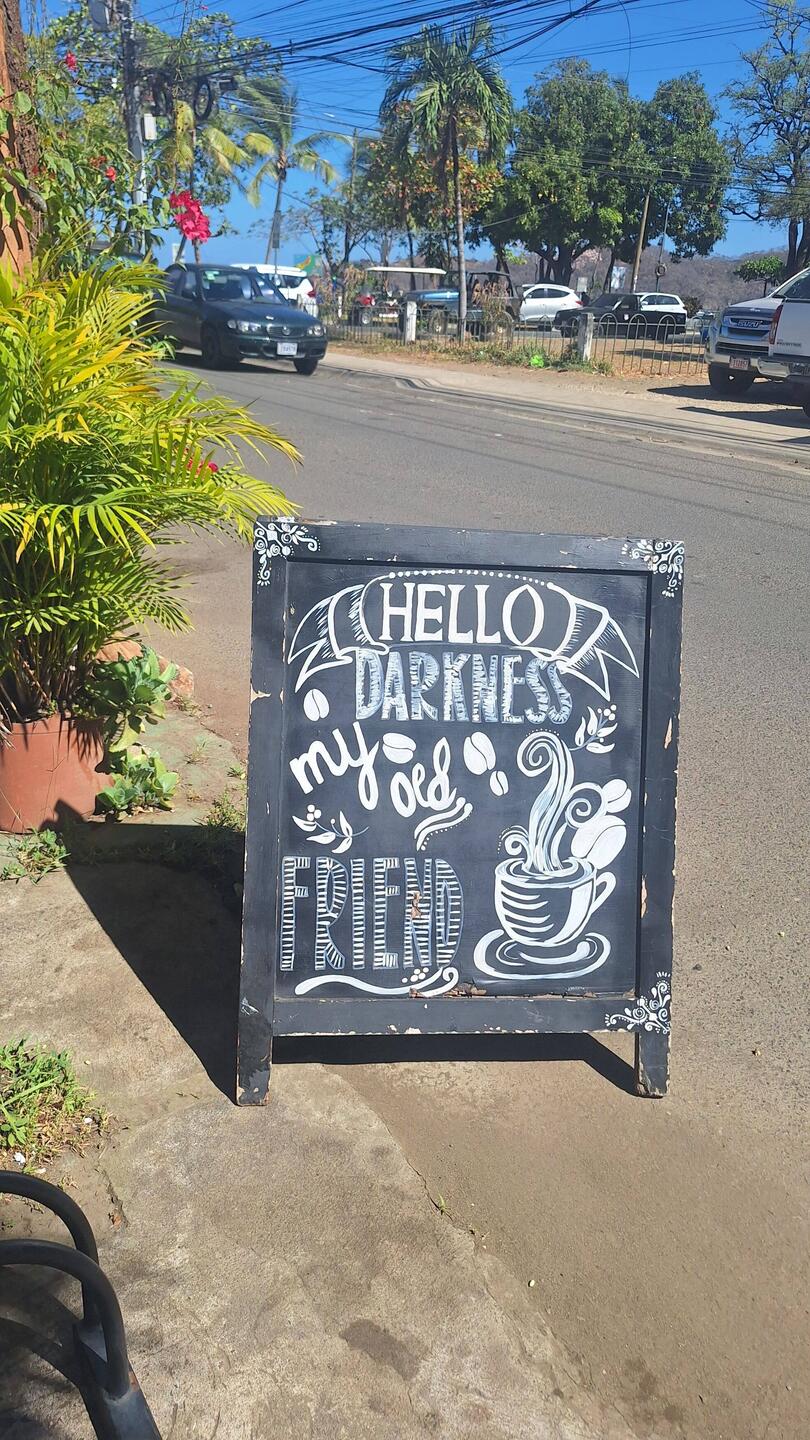 HELLO
DARKNESS
my old
FRIEND